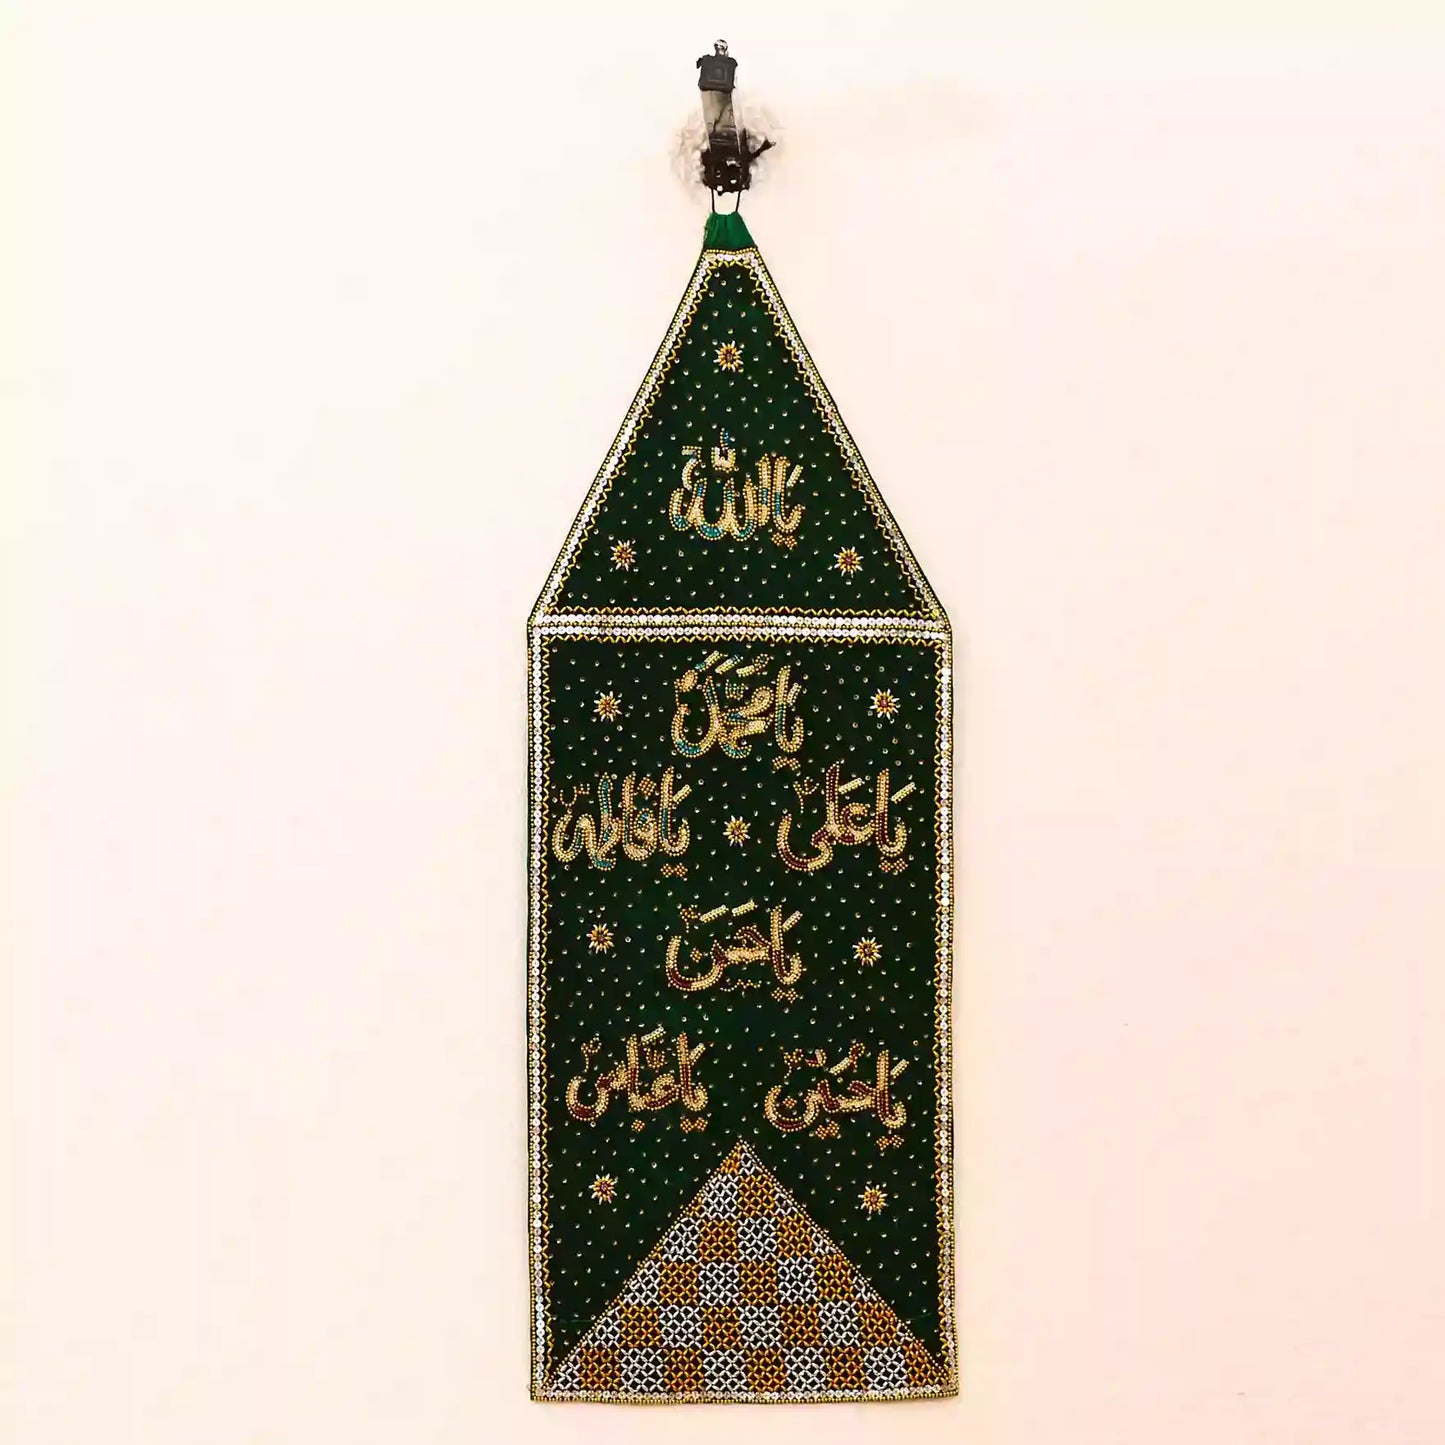 يا الله
يا محمدؐ
يا علیؑ يا فاطمہؑ
يا حسنؑ
يا حسینؑ يا عباسؑ